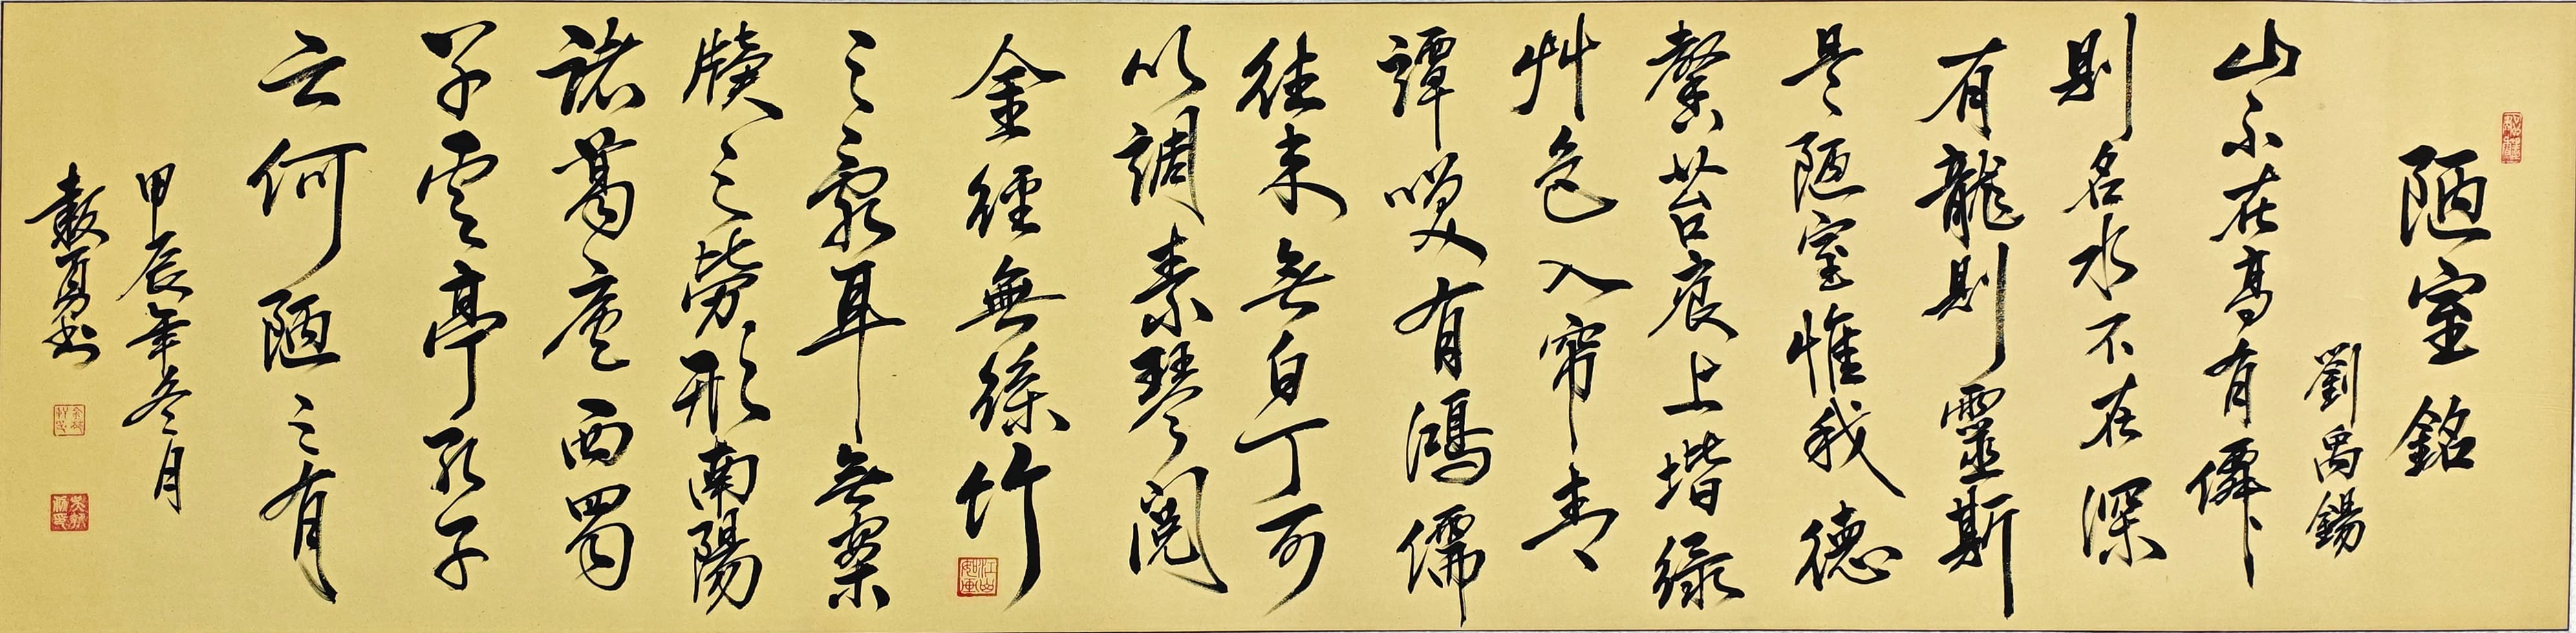 陋室銘
劉禹錫
山不在高有僊
則名水不在深
有龍則靈斯
是陋室惟我德
馨苔痕上堦綠
艸色入帘青
譚咲有鴻儒
往來無白丁可
以調素琴閱
金經無絲竹
之亂耳無案
牘之勞形南陽
諸葛廬西蜀
子雲亭孔子
云何陋之有
甲辰年冬月
書
江山如画